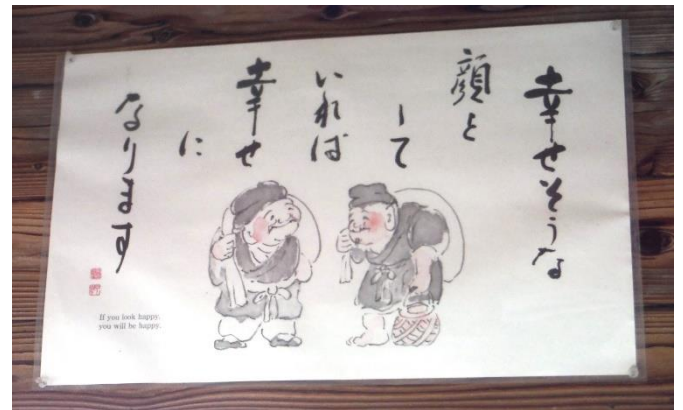 幸せそうな
顔を
して
いれば
幸せ
に
なります
If you look happy,
you will be happy.